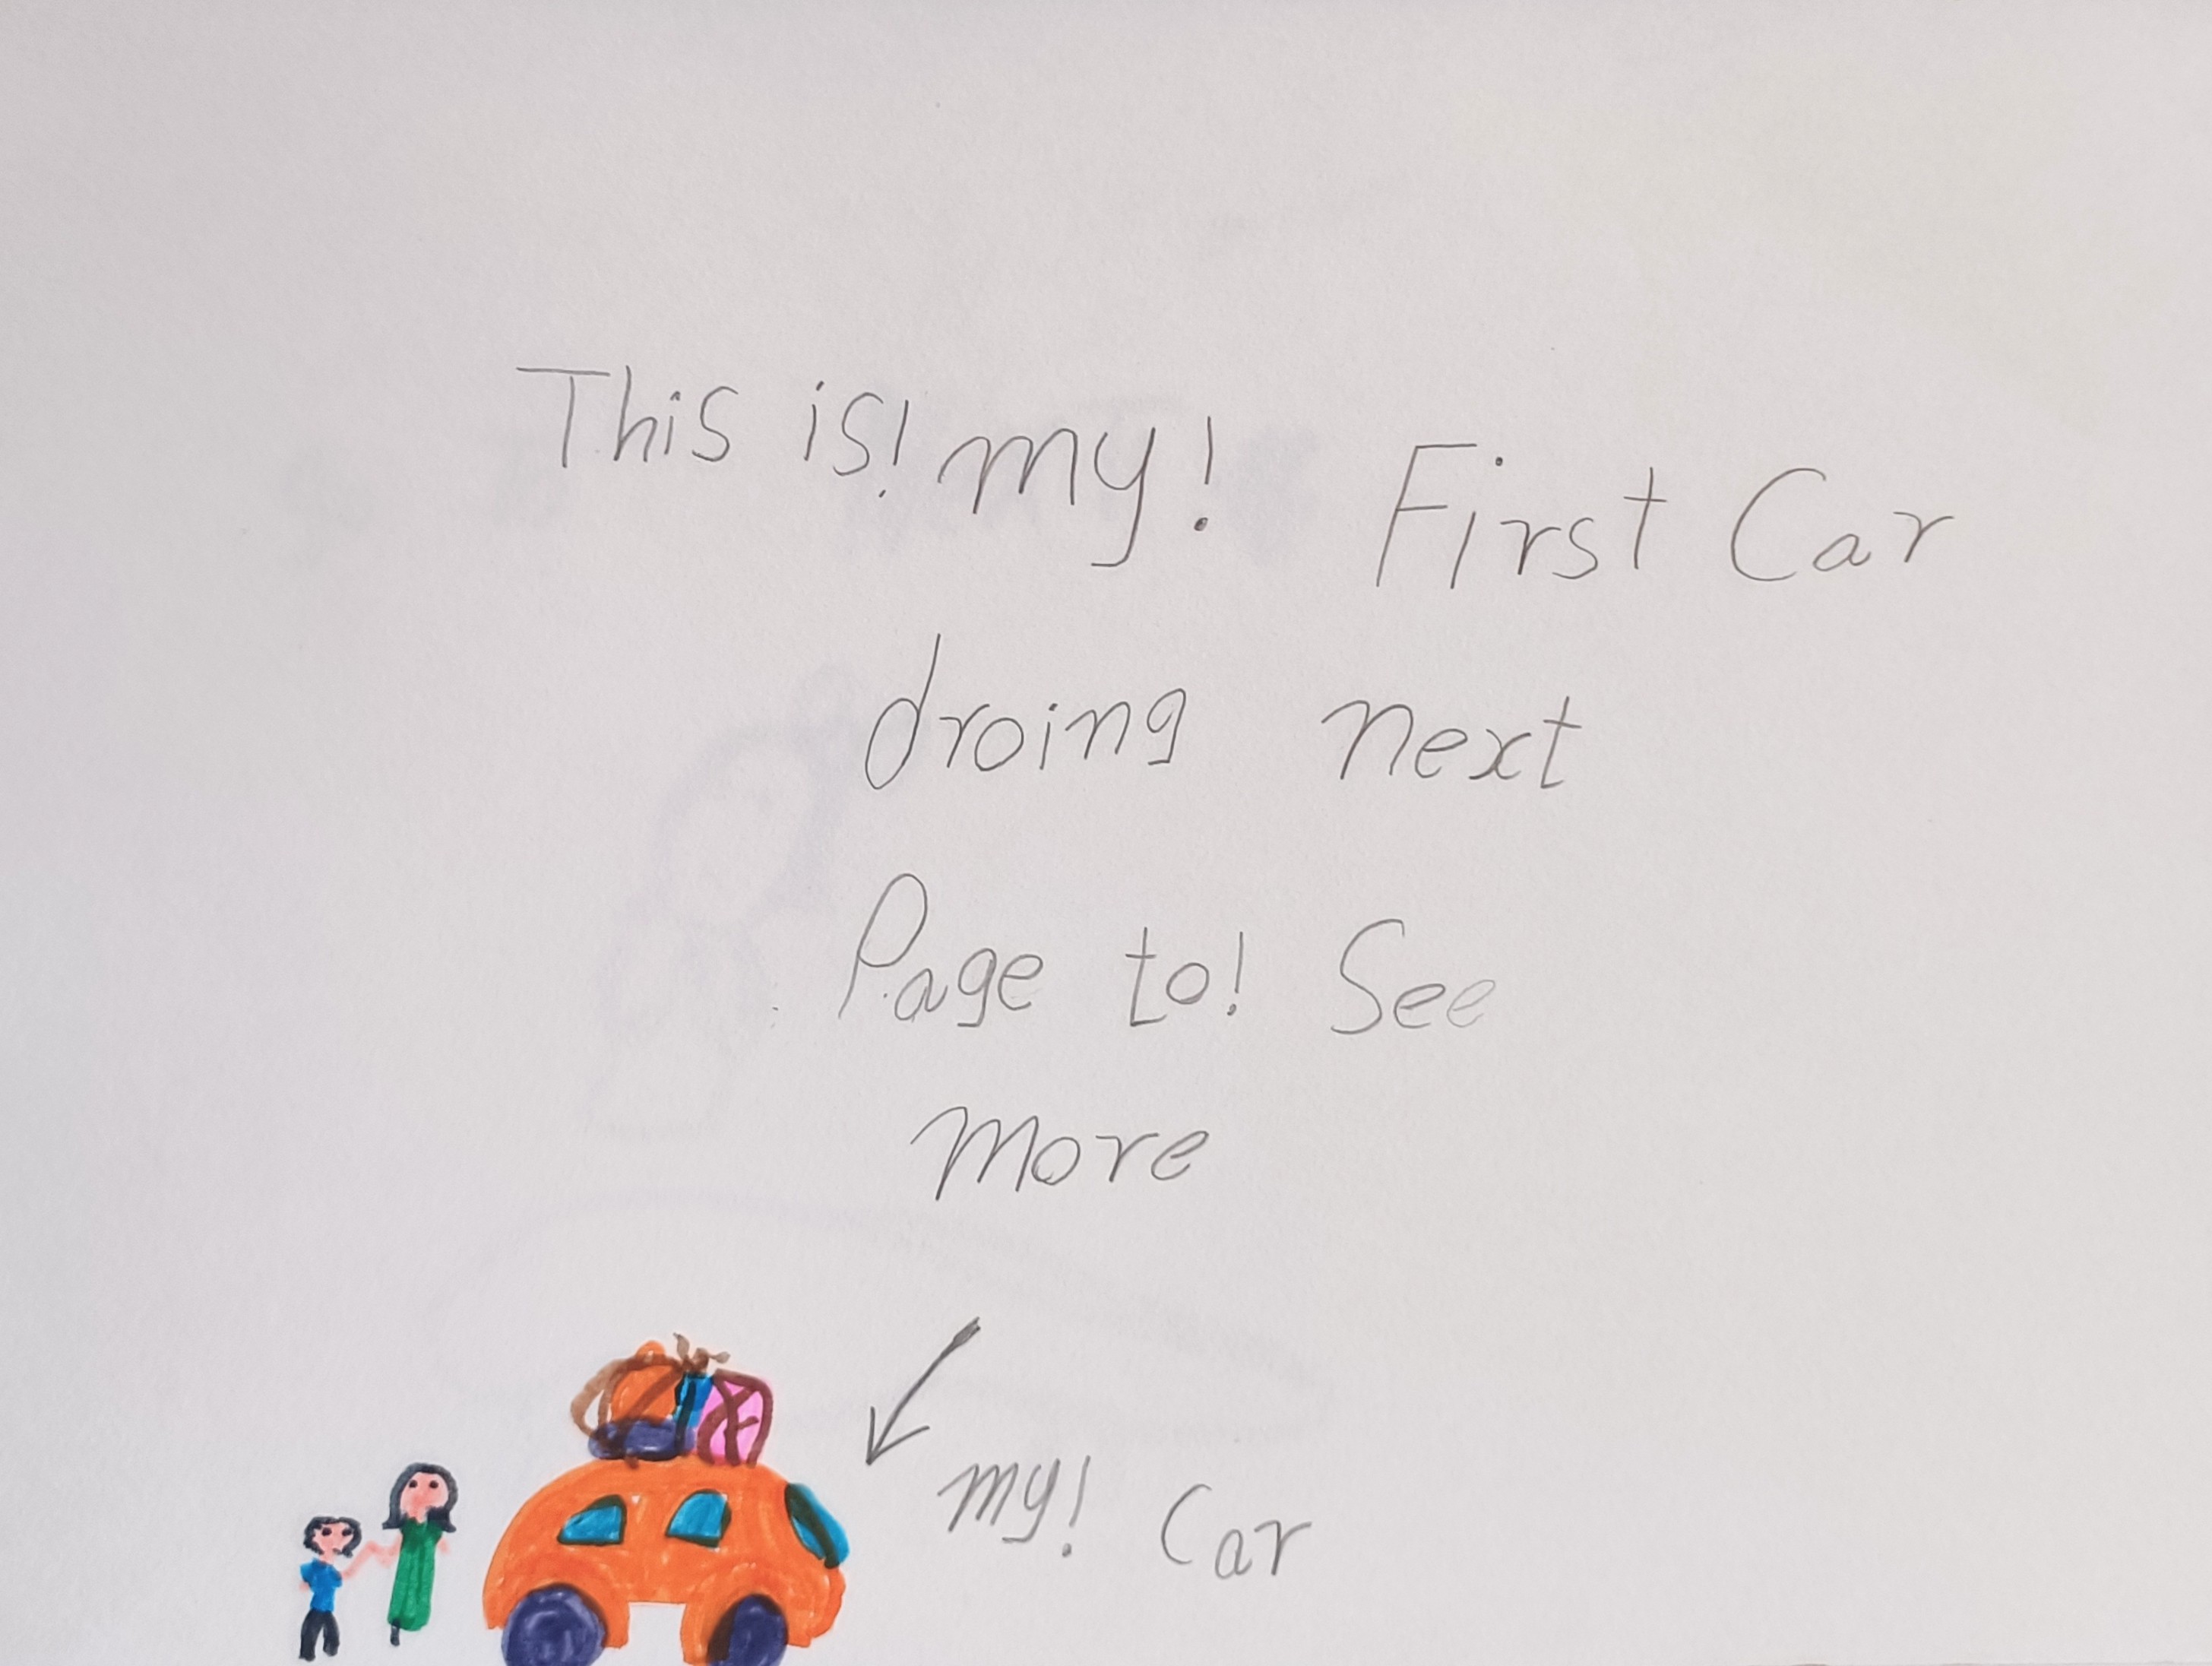 This is! my! First Car
droing next
Page to! See
more
my! Car